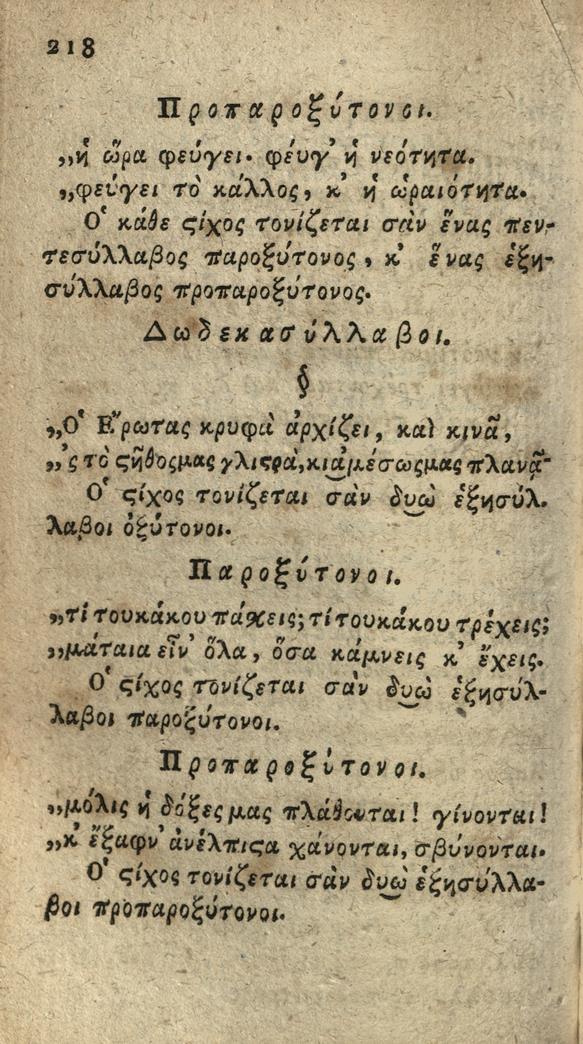 218
Προπαροξύτονοι.
„ἡ ὥρα φεύγει· φέυγ' ἡ νεότητα.
„φεύγει τὸ κάλλος, κ' ἡ ὡραιότητα.
Ὁ κάθε ϛίχος τονίζεται σὰν ἕνας πεν-
τεσύλλαβος παροξύτονος, κ' ἕνας ἑξη-
σύλλαβος προπαροξύτονος.
Δωδεκασύλλαβοι.
§
„Ὁ Ἔρωτας κρυφὰ ἀρχίζει, καὶ κινᾷ,
„'ς τὸ ϛῆθοςμας γλιϛρᾷ, κι ἀμέσωςμας πλανᾷ·
Ὁ ϛίχος τονίζεται σὰν δυὼ ἑξησύλ-
λαβοι ὀξύτονοι.
Παροξύτονοι.
„τί τουκάκου πάχεις; τί τουκάκου τρέχεις;
„μάταια εἶν' ὅλα, ὅσα κάμνεις κ' ἔχεις.
Ὁ ϛίχος τονίζεται σὰν δυὼ ἑξησύλ-
λαβοι παροξύτονοι.
Προπαροξύτονοι.
„μόλις ἡ δόξες μας πλάθουται! γίνονται!
„κ' ἔξαφν' ἀνέλπιϛα χάνονται, σβύνονται.
Ὁ ϛίχος τονίζεται σὰν δυὼ ἑξησύλλα-
βοι προπαροξύτονοι.